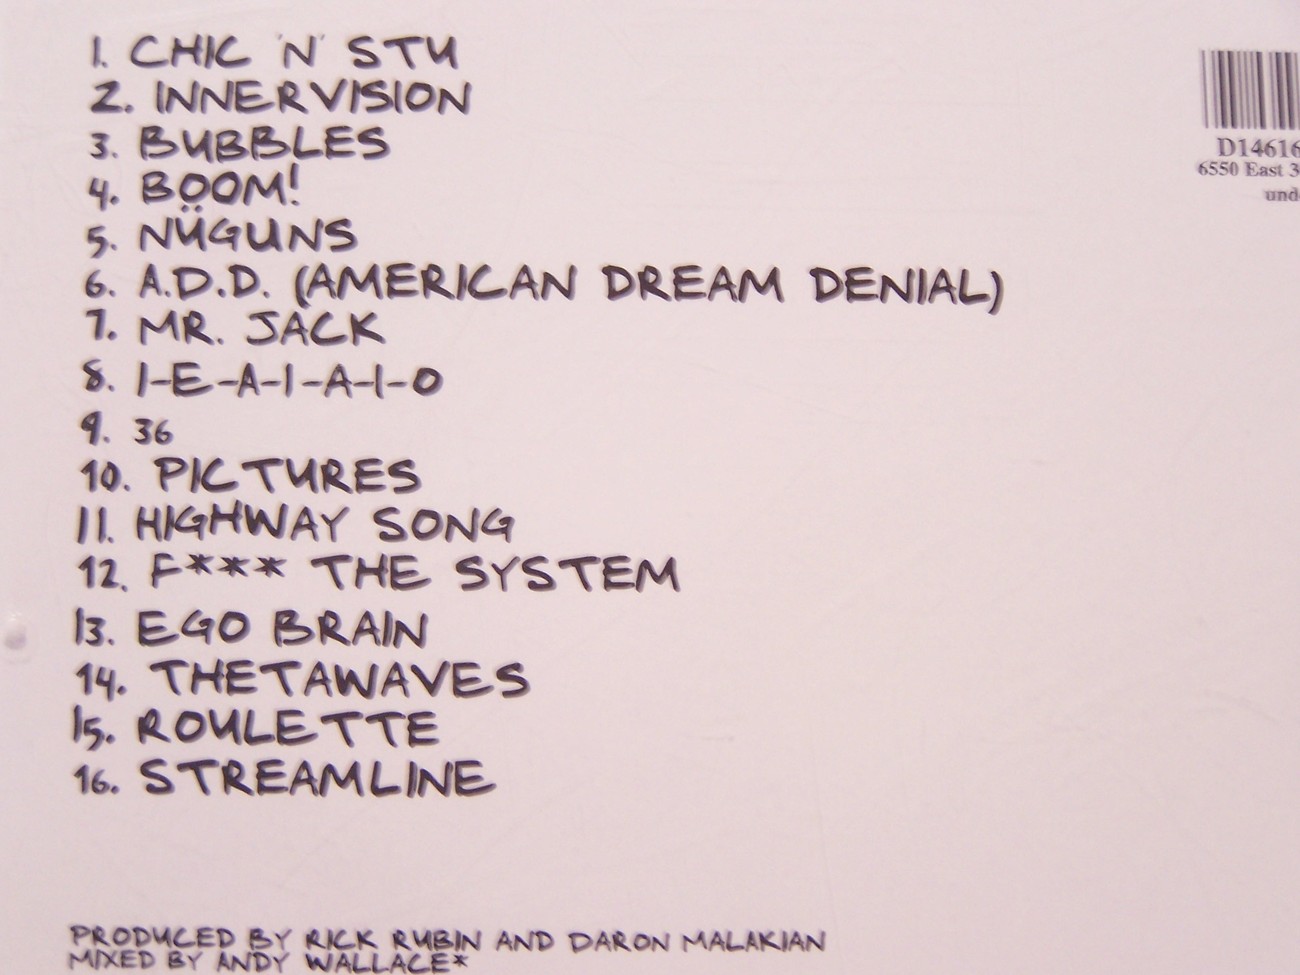 1. CHIC 'N' STU
2. INNERVISION
3. BUBBLES
4. BOOM!
5. NÜGUNS
6. A.D.D. (AMERICAN DREAM DENIAL)
7. MR. JACK
8. I-E-A-I-A-I-O
9. 36
10. PICTURES
11. HIGHWAY SONG
12. F*** THE SYSTEM
13. EGO BRAIN
14. THETAWAVES
15. ROULETTE
16. STREAMLINE
PRODUCED BY RICK RUBIN AND DARON MALAKIAN
MIXED BY ANDY WALLACE*
D14616
6550 East 3
und